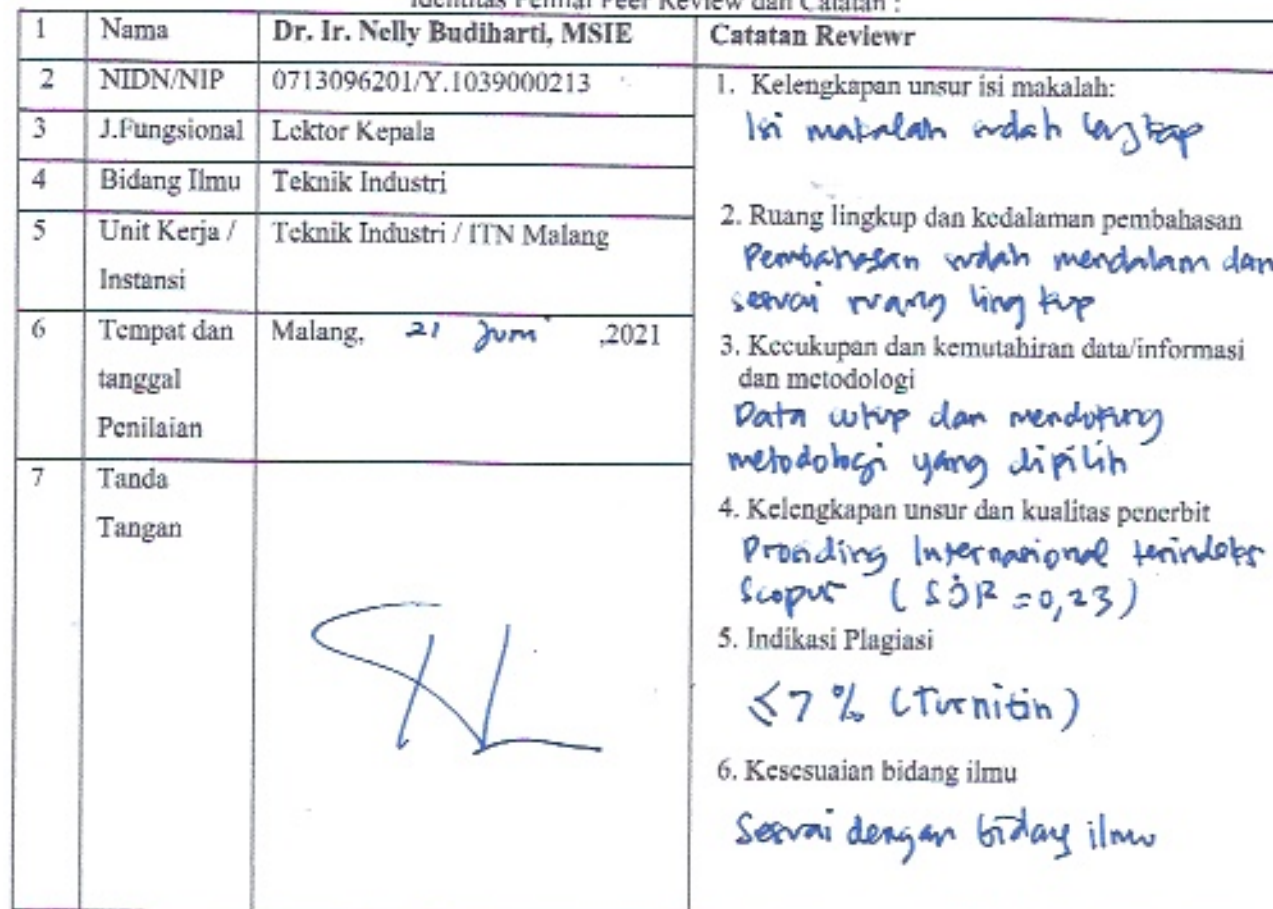 Identitas Penilai Peer Review dan Catatan :
1 Nama Dr. Ir. Nelly Budiharti, MSIE
2 NIDN/NIP 0713096201/Y.1039000213
3 J.Fungsional Lektor Kepala
4 Bidang Ilmu Teknik Industri
5 Unit Kerja / Teknik Industri / ITN Malang
Instansi
6 Tempat dan Malang, 21 Juni ,2021
tanggal
Penilaian
7 Tanda
Tangan
Catatan Reviewr
1. Kelengkapan unsur isi makalah:
Isi makalah sudah lengkap
2. Ruang lingkup dan kedalaman pembahasan
Pembahasan sudah mendalam dan
sesuai ruang lingkup
3. Kecukupan dan kemutahiran data/informasi
dan metodologi
Data cukup dan mendukung
metodologi yang dipilih
4. Kelengkapan unsur dan kualitas penerbit
Prosiding Internasional terindeks
Scopus (SJR = 0,23)
5. Indikasi Plagiasi
≤7 % (Turnitin)
6. Kesesuaian bidang ilmu
Sesuai dengan bidang ilmu